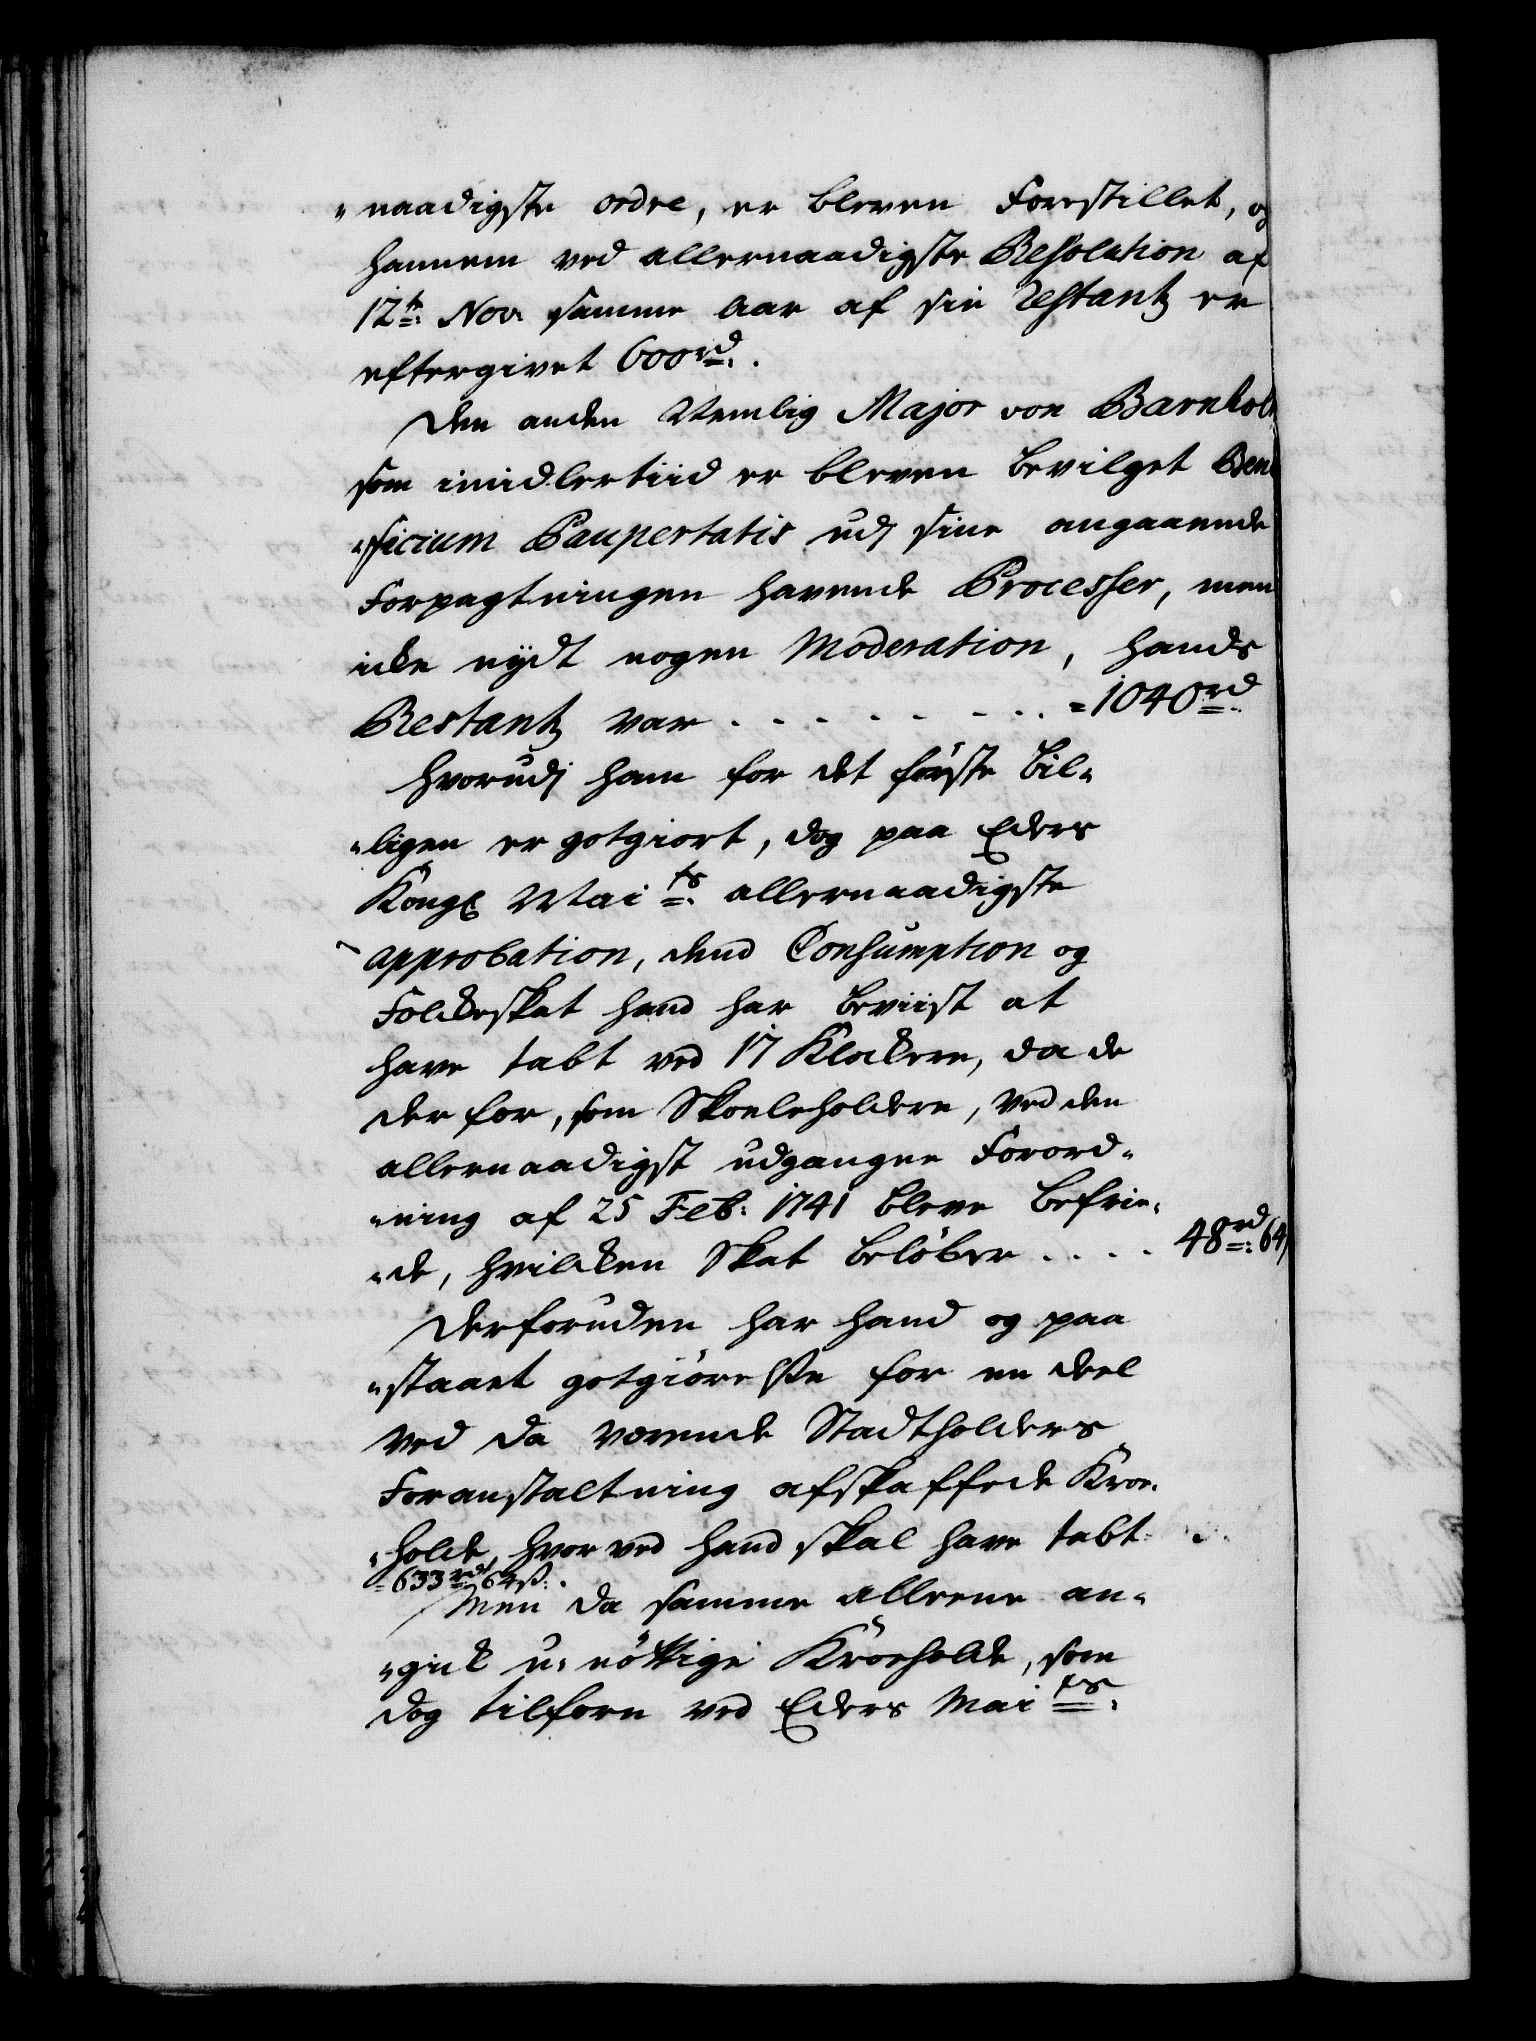 "naadigste ordre, er bleven Forestillet, og
hannem ved allernaadigste Resolution af
12te Nov. samme Aar af sin Restantz er
eftergivet 600rd.
Den anden Nemlig Major von Barnholt
som imidlertiid er bleven bevilget Bene
"ficium Paupertatis udj sine angaaende
Forpagtningen havende Processer, men
icke nÿdt nogen Moderation, hands
Restantz var . . . . . . . . . = 1040rd.
Hvorudj ham for det förste bil"
"ligen er gotgiort, dog paa Eders
Kongl Maits. allernaadigste
approbation, dend Consumption og
Folckeskat hand har beviist at
have tabt ved 17 Klockere, da de
derfor, som Skoeleholdere, ved den
allernaadigst udgangne Forord"
"ning af 25 Feb: 1741 bleve befrie"
"de, hvilcken Skat belöber . . . . 48rd: 64
Derforuden har hand og paa
"staaet gotgiörelse for en deel
ved da værende Stadtholders
Foranstaltning afskaffede Kroe"
"holde, hvorved hand skal have tabt
= 633rd 64s:.
Men da samme alleene an"
"gick u-nöttige Kroehold, som
dog tilforn ved Eders Maits.